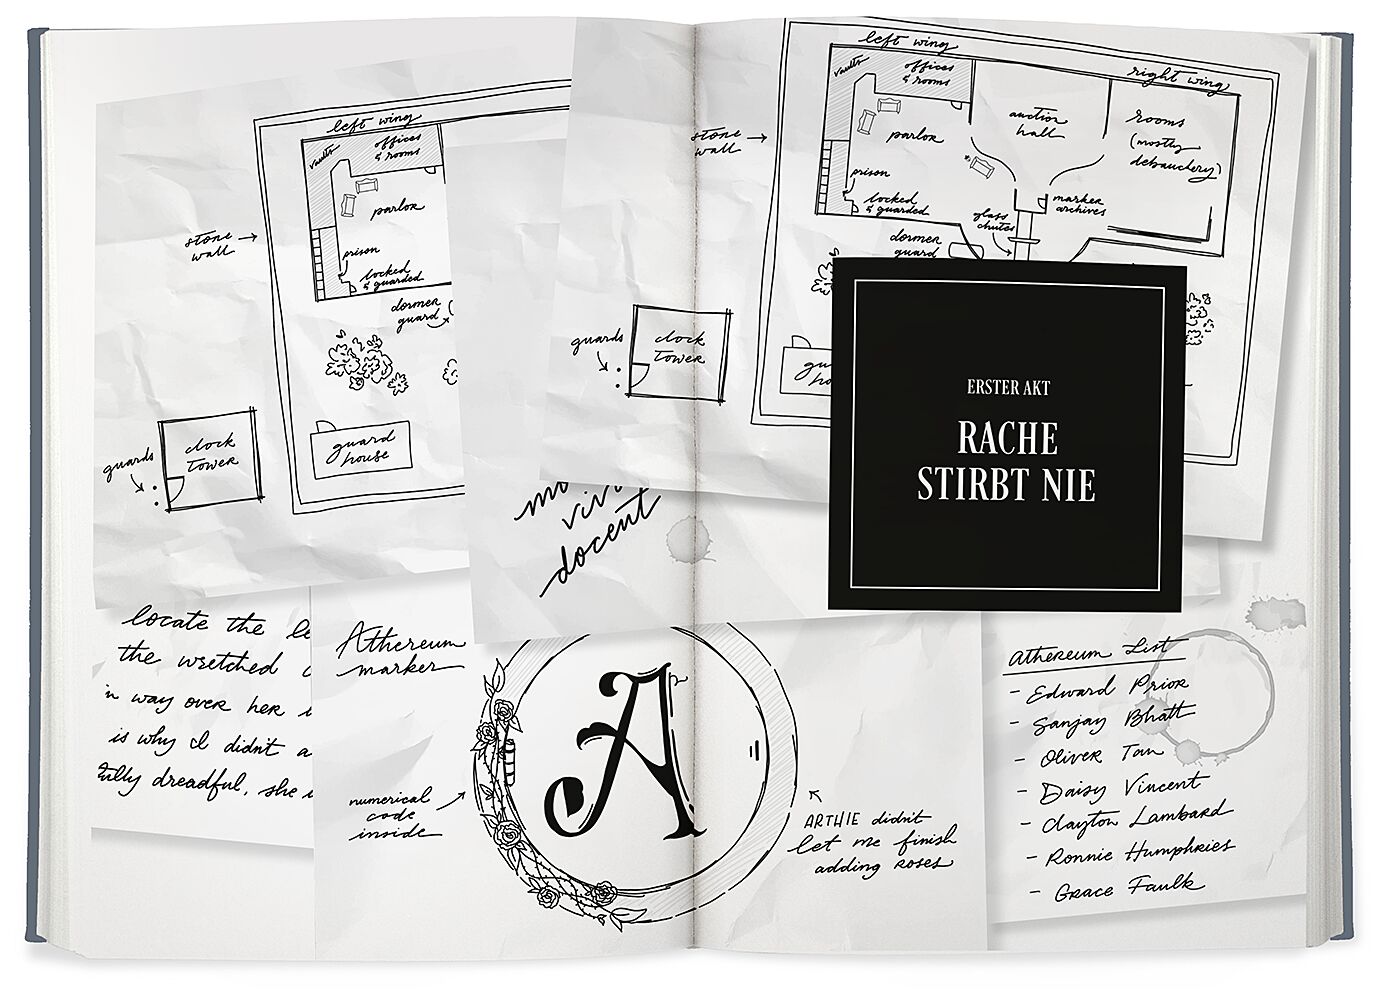 left wing
vaults
offices
& rooms
parlor
stone
wall
prison
locked
& guarded
dormer
guard
guards
clock
tower
guard
house
left wing
right wing
vaults
offices
& rooms
parlor
auction
hall
rooms
(mostly
debauchery)
stone
wall
prison
locked
& guarded
marker
archives
glass
chutes
dormer
guard
guards
clock
tower
docent
ERSTER AKT
RACHE
STIRBT NIE
locate the
the wretched
way over her
is why I didn't
dreadful, she
Athereum
marker
A
numerical
code
inside
ARTHIE didn't
let me finish
adding roses
Athereum List
- Edward Prior
- Sanjay Bhatt
- Oliver Tan
- Daisy Vincent
- Clayton Lambard
- Ronnie Humphries
- Grace Faulk